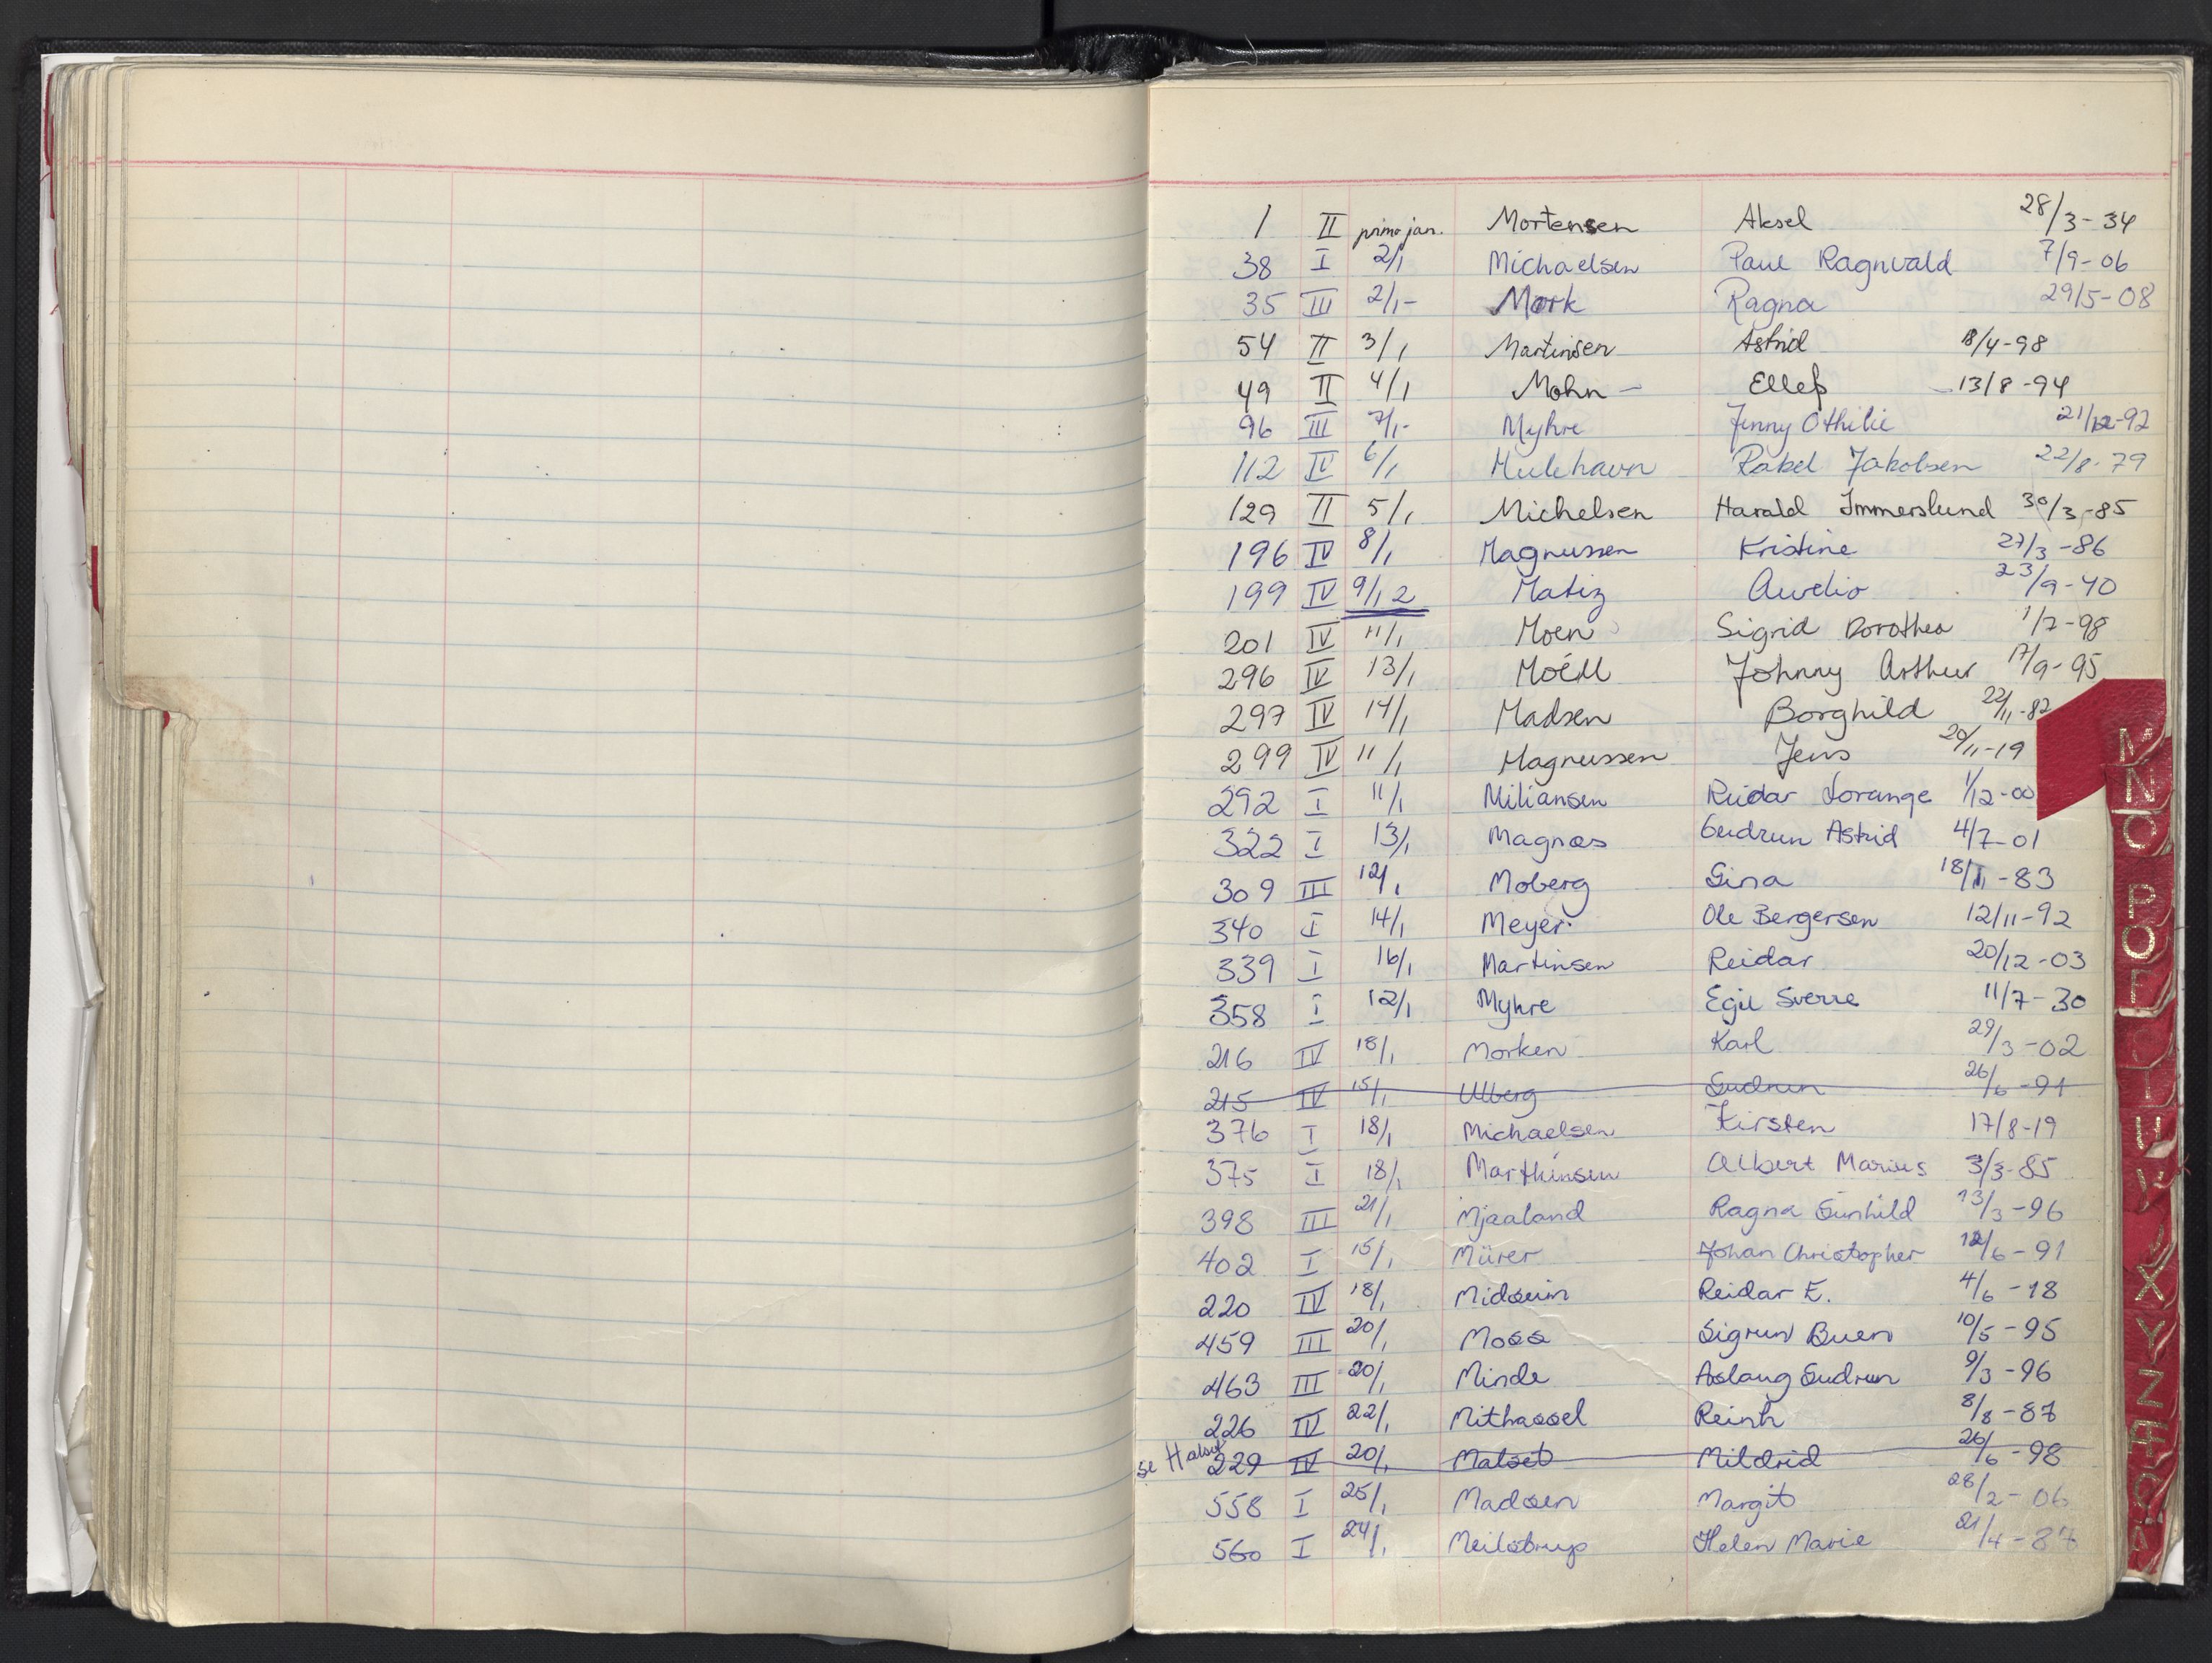 1 II primo jan. Mortensen Aksel 28/3-34
38 I 2/1 Michaelsen Paul Ragnvald 7/9-06
35 III 2/1- Mork Ragna 29/5-08
54 II 3/1 Martinsen Astrid 8/4-98
49 II 4/1 Mohn - Ellef - 13/8-94
96 III 7/1- Myhre Jenny Othilie 21/12-92
112 IV 6/1 Mulehavn Rakel Jakobsen 22/8-79
129 II 5/1 Michelsen Harald Immerslund 30/3-85
196 IV 8/1 Magnussen Kristine 27/3-86
199 IV 9/12 Matiz Aurelio 23/9-40
201 IV 11/1 Moen Sigrid Dorothea 1/7-98
296 IV 13/1 Moéll Johnny Arthur 17/9-95
297 IV 14/1 Madsen Borghild 22/11-82
299 IV 11/1 Magnussen Jens 20/11-19
292 I 11/1 Miliansen Reidar Lorange 1/12-00
322 I 13/1 Magnæs Gudrun Astrid 4/7-01
309 III 12/1 Moberg Gina 18/11-83
340 I 14/1 Meyer Ole Bergersen 12/11-92
339 I 16/1 Martinsen Reidar 20/12-03
358 I 12/1 Myhre Egil Sverre 11/7-30
216 IV 18/1 Morken Karl 29/3-02
215 IV 15/1 Ulberg Gudrun 26/6-91
376 I 18/1 Michaelsen Kirsten 17/8-19
375 I 18/1 Marthinsen Albert Marius 3/3-85
398 III 21/1 Mjaaland Ragna Gunhild 13/3-96
402 I 15/1 Mürer Johan Christopher 12/6-91
220 IV 18/1 Midsuin Reidar E. 4/6-18
459 III 20/1 Moss Sigrun Buen 10/5-95
463 III 20/1 Minde Aslaug Gudrun 9/3-96
226 IV 22/1 Mithassel Reinh 8/8-87
se Halset 229 IV 20/1 Malset Mildrid 26/6-98
558 I 25/1 Madsen Margit 28/2-06
560 I 24/1 Meilstrup Helen Marie 21/4-87
M
N
O
P
U
X
Y
Z
Æ
Ø